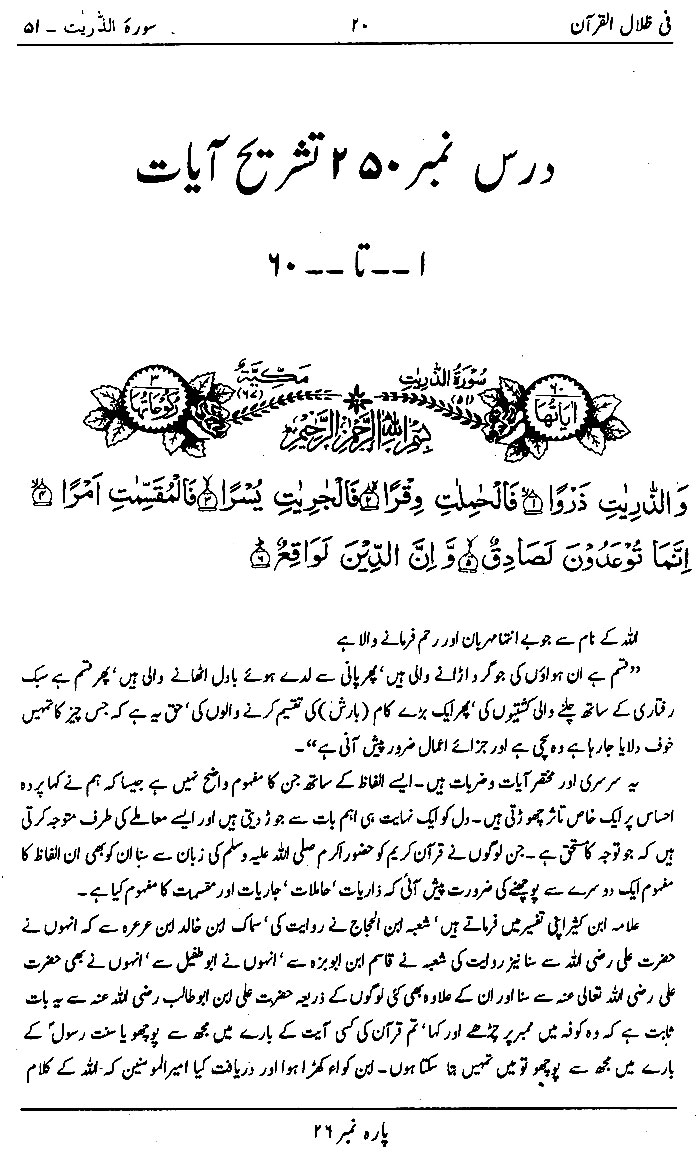 فی ظلال القرآن ۲۰ سورۃ الذّٰریٰت ـ ۵۱
درس نمبر ۲۵۰ تشریح آیات
۱ ـ ـ تا ـ ـ ۶۰
۶۰ اٰیَاتُهَا سُوْرَةُ الذّٰرِیٰتِ (۵۱) مَكِّيَّةٌ (۶۷) ۳ رُكُوْعَاتُهَا
بِسْمِ اللّٰهِ الرَّحْمٰنِ الرَّحِيْمِ
وَالذّٰرِیٰتِ ذَرْوًا ﴿۱﴾ فَالْحٰمِلٰتِ وِقْرًا ﴿۲﴾ فَالْجٰرِیٰتِ یُسْرًا ﴿۳﴾ فَالْمُقَسِّمٰتِ اَمْرًا ﴿۴﴾
اِنَّمَا تُوْعَدُوْنَ لَصَادِقٌ ﴿۵﴾ وَّ اِنَّ الدِّیْنَ لَوَاقِعٌ ﴿۶﴾
اللہ کے نام سے جو بے انتہا مہربان اور رحم فرمانے والا ہے
”قسم ہے ان ہواؤں کی جو گرد اڑانے والی ہیں‘ پھر پانی سے لدے ہوئے بادل اٹھانے والی ہیں‘ پھر قسم ہے سبک
رفتاری کے ساتھ چلنے والی کشتیوں کی‘ پھر ایک بڑے کام (بارش) کی تقسیم کرنے والوں کی‘ حق یہ ہے کہ جس چیز کا تمہیں
خوف دلایا جا رہا ہے وہ سچی ہے اور جزائے اعمال ضرور پیش آنی ہے“۔
یہ سرسری اور مختصر آیات و ضربات ہیں۔ ایسے الفاظ کے ساتھ جن کا مفہوم واضح نہیں ہے جیسا کہ ہم نے کہا پردہ
احساس پر ایک خاص تاثر چھوڑتی ہیں۔ دل کو ایک نہایت ہی اہم بات سے جوڑ دیتی ہیں اور ایسے معاملے کی طرف متوجہ کرتی
ہیں کہ جو توجہ کا مستحق ہے۔ جن لوگوں نے قرآن کریم کو حضور اکرم صلی اللہ علیہ وسلم کی زبان سے سنا ان کو بھی ان الفاظ کا
مفہوم ایک دوسرے سے پوچھنے کی ضرورت پیش آئی کہ ذاریات‘ حاملات‘ جاریات اور مقسمت کا مفہوم کیا ہے۔
علامہ ابن کثیر اپنی تفسیر میں فرماتے ہیں‘ شعبہ ابن الحجاج نے روایت کی‘ سماک ابن خالد ابن عرعرہ سے کہ انہوں نے
حضرت علی رضی اللہ سے سنا نیز روایت کی شعبہ نے قاسم ابن ابوبزہ سے‘ انہوں نے ابو طفیل سے‘ انہوں نے بھی حضرت
علی رضی اللہ تعالی عنہ سے سنا اور ان کے علاوہ بھی کئی لوگوں کے ذریعہ حضرت علی ابن ابوطالب رضی اللہ عنہ سے یہ بات
ثابت ہے کہ وہ کوفہ میں ممبر پر چڑھے اور کہا‘ تم قرآن کی کسی آیت کے بارے میں مجھ سے پوچھو یا سنت رسولؐ کے
بارے میں مجھ سے پوچھو تو میں تمہیں بتا سکتا ہوں۔ ابن کواء کھڑا ہوا اور دریافت کیا امیر المومنین کہ اللہ کے کلام
پارہ نمبر ۲۶